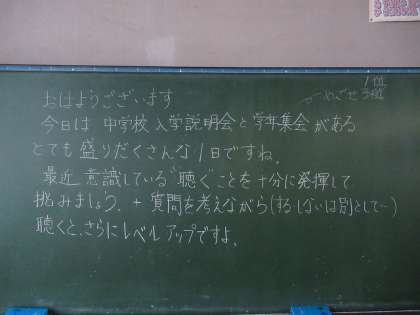 おはようございます
今日は 中学校 入学説明会と学年集会がある
とても盛りだくさんな1日ですね。
最近 意識している"聴く"ことを十分に発揮して
挑みましょう。+ 質問を考えながら(する・しないは別として…)
聴くと、さらにレベルアップですよ。